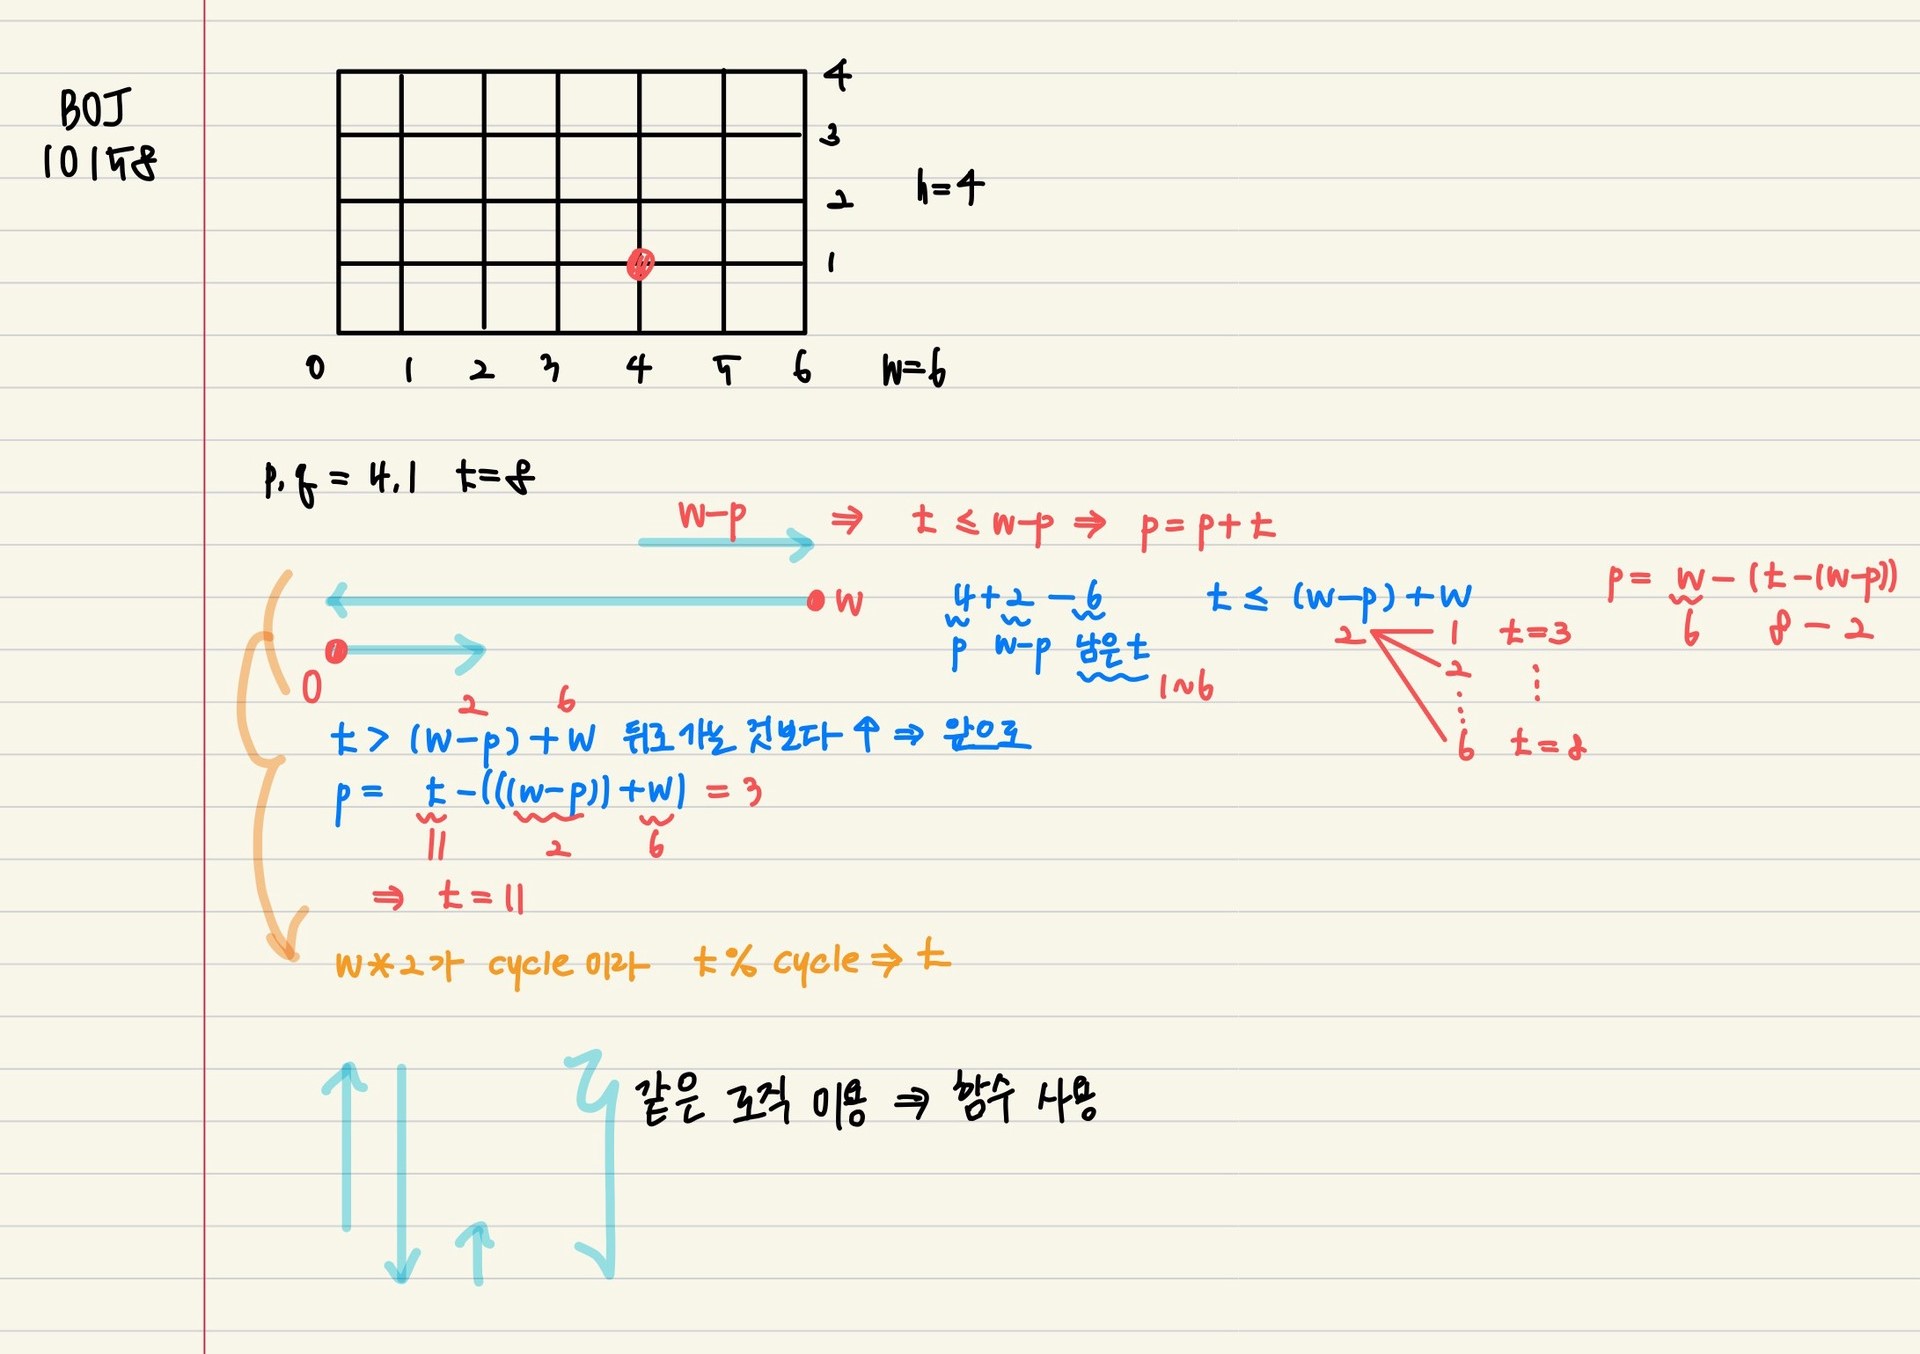 BOJ
10158
4
3
2
1
h=4
0 1 2 3 4 5 6 w=6
p.q = 4.1 t=8
w-p ⇒ t ≤ w-p ⇒ p = p+t
w
4+2-6
p w-p 남은 t
1~6
t ≤ (w-p)+w
2 1 t=3
2
⋮ ⋮
6 t=8
p = w-(t-(w-p))
6 8-2
0
2 6
t > (w-p)+w 뒤로 가는 것보다 ↑ ⇒ 앞으로
p = t-(((w-p))+w) = 3
11 2 6
⇒ t = 11
w*2가 cycle 이라 t % cycle ⇒ t
같은 로직 이용 ⇒ 함수 사용